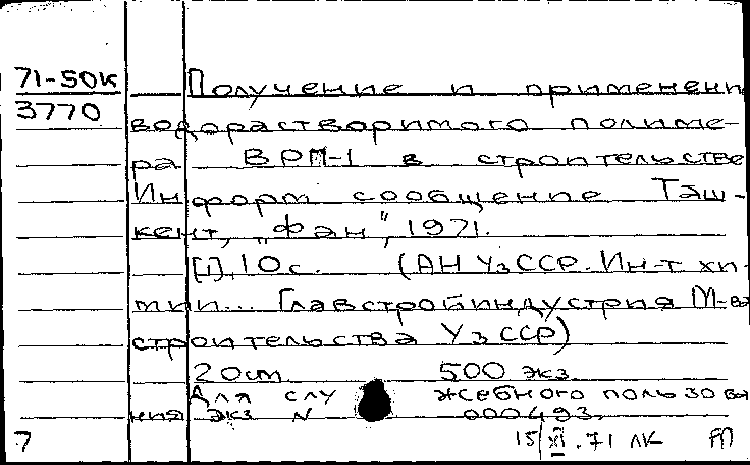 71-50К Получение и применени
3770 водорастворимого полиме-
ра ВРП-1 в строительстве
Информ сообщение Таш-
кент, „Фан", 1971.
[1], 10с. (АН УзССР. Ин-т хи-
мии... Главстройиндустрия М-ва
строительства УзССР)
20см 500 экз.
Для служебного пользова
ния экз N 000493.
7 15/XI.71 ЛК РП